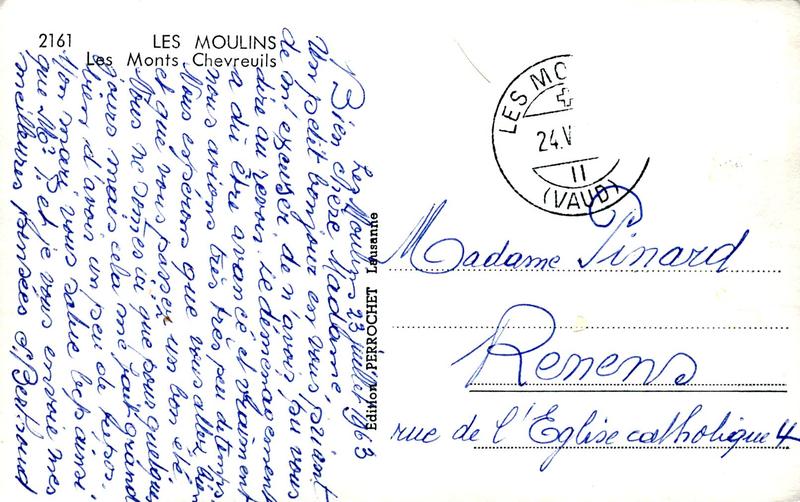 2161 LES MOULINS
Les Monts Chevreuils
Les Moulins 23 juillet 1963
Bien chère Madame,
Un petit bonjour en vous priant
de m'excuser de n'avoir pu vous
dire au revoir. Le déménagement
a dû être avancé et vraiment
nous avions très très peu de temps
Nous espérons que vous allez bien
et que vous passez un bon été.
Nous ne sommes ici que pour quelques
jours mais cela me fait grand
bien d'avoir un peu de repos.
Mon mari vous salue bcp ainsi
que Mr P. et je vous envoie mes
meilleures pensées
Edition PERROCHET Lausanne
LES MO
24.V
II
(VAUD)
Madame Pinard
Renens
rue de l'Eglise catholique 4